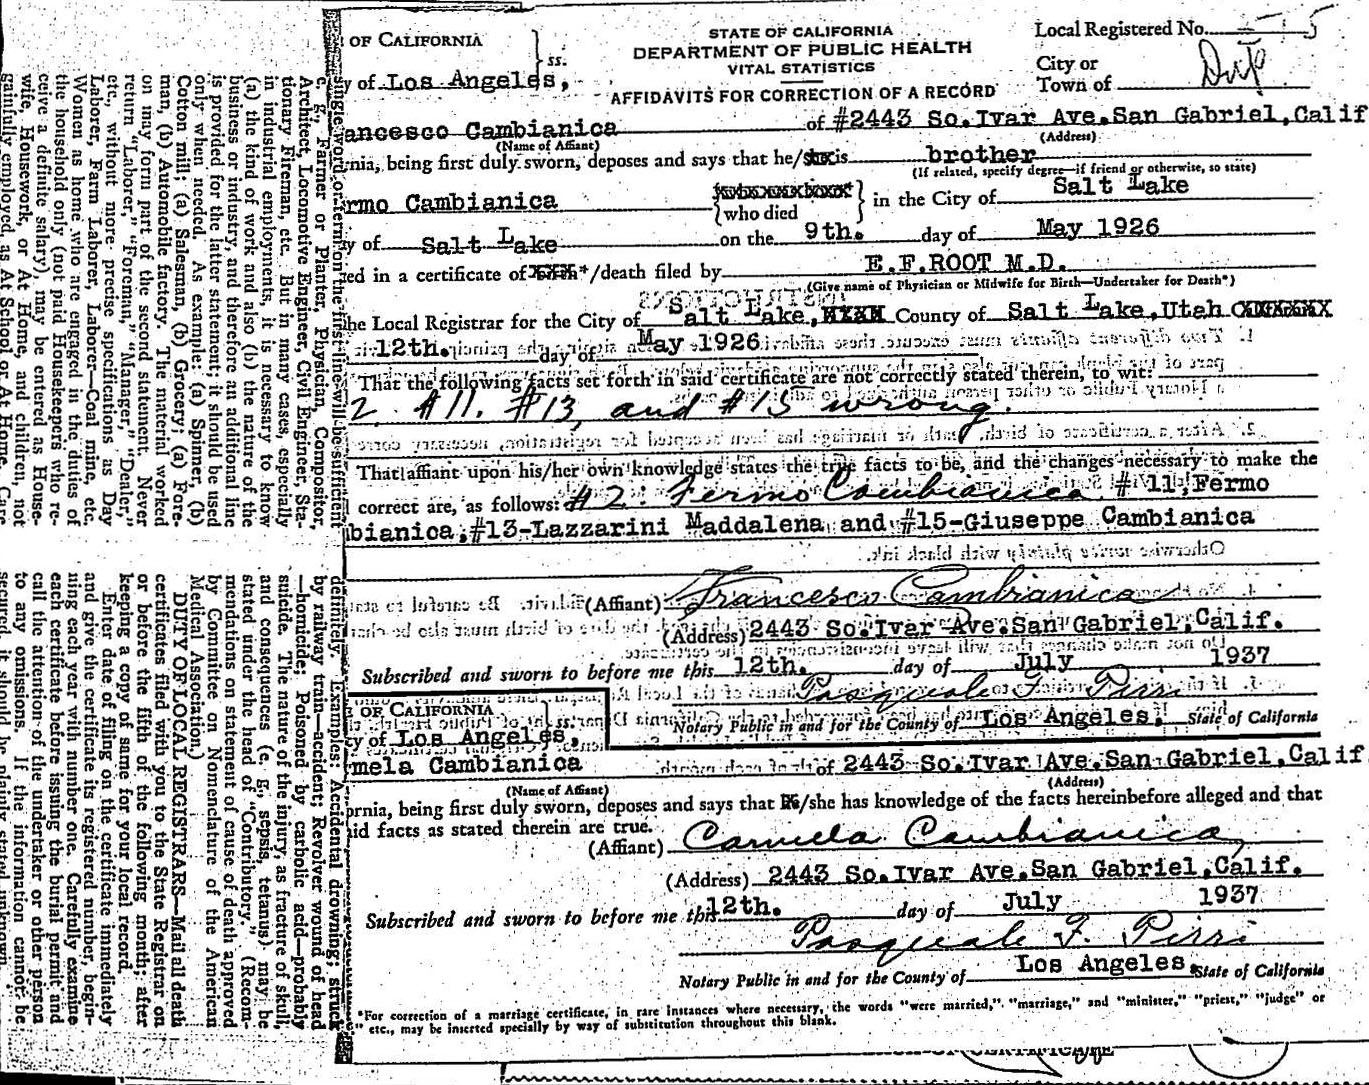 STATE OF CALIFORNIA
DEPARTMENT OF PUBLIC HEALTH
VITAL STATISTICS
AFFIDAVITS FOR CORRECTION OF A RECORD
Local Registered No.
City or
Town of
OF CALIFORNIA
ss.
y of Los Angeles,
ancesco Cambianica of #2443 So.Ivar Ave.San Gabriel,Calif
(Name of Affiant) (Address)
rnia, being first duly sworn, deposes and says that he/she is brother
(If related, specify degree—if friend or otherwise, so state)
rmo Cambianica who died in the City of Salt Lake
y of Salt Lake on the 9th. day of May 1926
ed in a certificate of */death filed by E.F.ROOT M.D.
(Give name of Physician or Midwife for Birth—Undertaker for Death*)
he Local Registrar for the City of Salt Lake, County of Salt Lake,Utah
12th. day of May 1926
That the following facts set forth in said certificate are not correctly stated therein, to wit:
2. #11. #13, and #15 wrong.
That affiant upon his/her own knowledge states the true facts to be, and the changes necessary to make the
correct are, as follows: #2. Fermo Cambianica #11,Fermo
bianica,#13-Lazzarini Maddalena and #15-Giuseppe Cambianica
(Affiant) Francesco Cambianica
(Address) 2443 So.Ivar Ave.San Gabriel,Calif.
Subscribed and sworn to before me this 12th. day of July 1937
Pasquale F. Pirri
Notary Public in and for the County of Los Angeles, State of California
OF CALIFORNIA
y of Los Angeles,
mela Cambianica of 2443 So.Ivar Ave.San Gabriel,Calif
(Name of Affiant) (Address)
ornia, being first duly sworn, deposes and says that he/she has knowledge of the facts hereinbefore alleged and that
id facts as stated therein are true.
(Affiant) Carmela Cambianica
(Address) 2443 So.Ivar Ave.San Gabriel,Calif.
Subscribed and sworn to before me this 12th. day of July 1937
Pasquale F. Pirri
Notary Public in and for the County of Los Angeles, State of California
*For correction of a marriage certificate, in rare instances where necessary, the words "were married," "marriage," and "minister," "priest," "judge" or
" etc., may be inserted specially by way of substitution throughout this blank.
single word or term on the first line will be sufficient
e. g., Farmer or Planter, Physician, Compositor,
Architect, Locomotive Engineer, Civil Engineer, Sta-
tionary Fireman, etc. But in many cases, especially
in industrial employments, it is necessary to know
(a) the kind of work and also (b) the nature of the
business or industry, and therefore an additional line
is provided for the latter statement; it should be used
only when needed. As example: (a) Spinner, (b)
Cotton mill; (a) Salesman, (b) Grocery; (a) Fore-
man, (b) Automobile factory. The material worked
on may form part of the second statement. Never
return "Laborer," "Foreman," "Manager," "Dealer,"
etc., without more precise specifications as Day
Laborer, Farm Laborer, Laborer—Coal mine, etc.
Women as home who are engaged in the duties of
the household only (not paid Housekeepers who re-
ceive a definite salary), may be entered as House-
wife, Housework, or At Home, and children, not
gainfully employed, as At School or At Home. Care
definitely. Examples: Accidental drowning; struck
by railway train—accident; Revolver wound of head
—homicide; Poisoned by carbolic acid—probably
suicide. The nature of the injury, as fracture of skull,
and consequences (e. g., sepsis, tetanus) may be
stated under the head of "Contributory." (Recom-
mendations on statement of cause of death approved
by Committee on Nomenclature of the American
Medical Association.)
DUTY OF LOCAL REGISTRARS—Mail all death
certificates filed with you to the State Registrar on
or before the fifth of the following month; after
keeping a copy of same for your local record.
Enter date of filing on the certificate immediately
and give the certificate its registered number, begin-
ning each year with number one. Carefully examine
each certificate before issuing the burial permit and
call the attention of the undertaker or other person
to any omissions. If the information cannot be
secured, it should be plainly stated unknown.